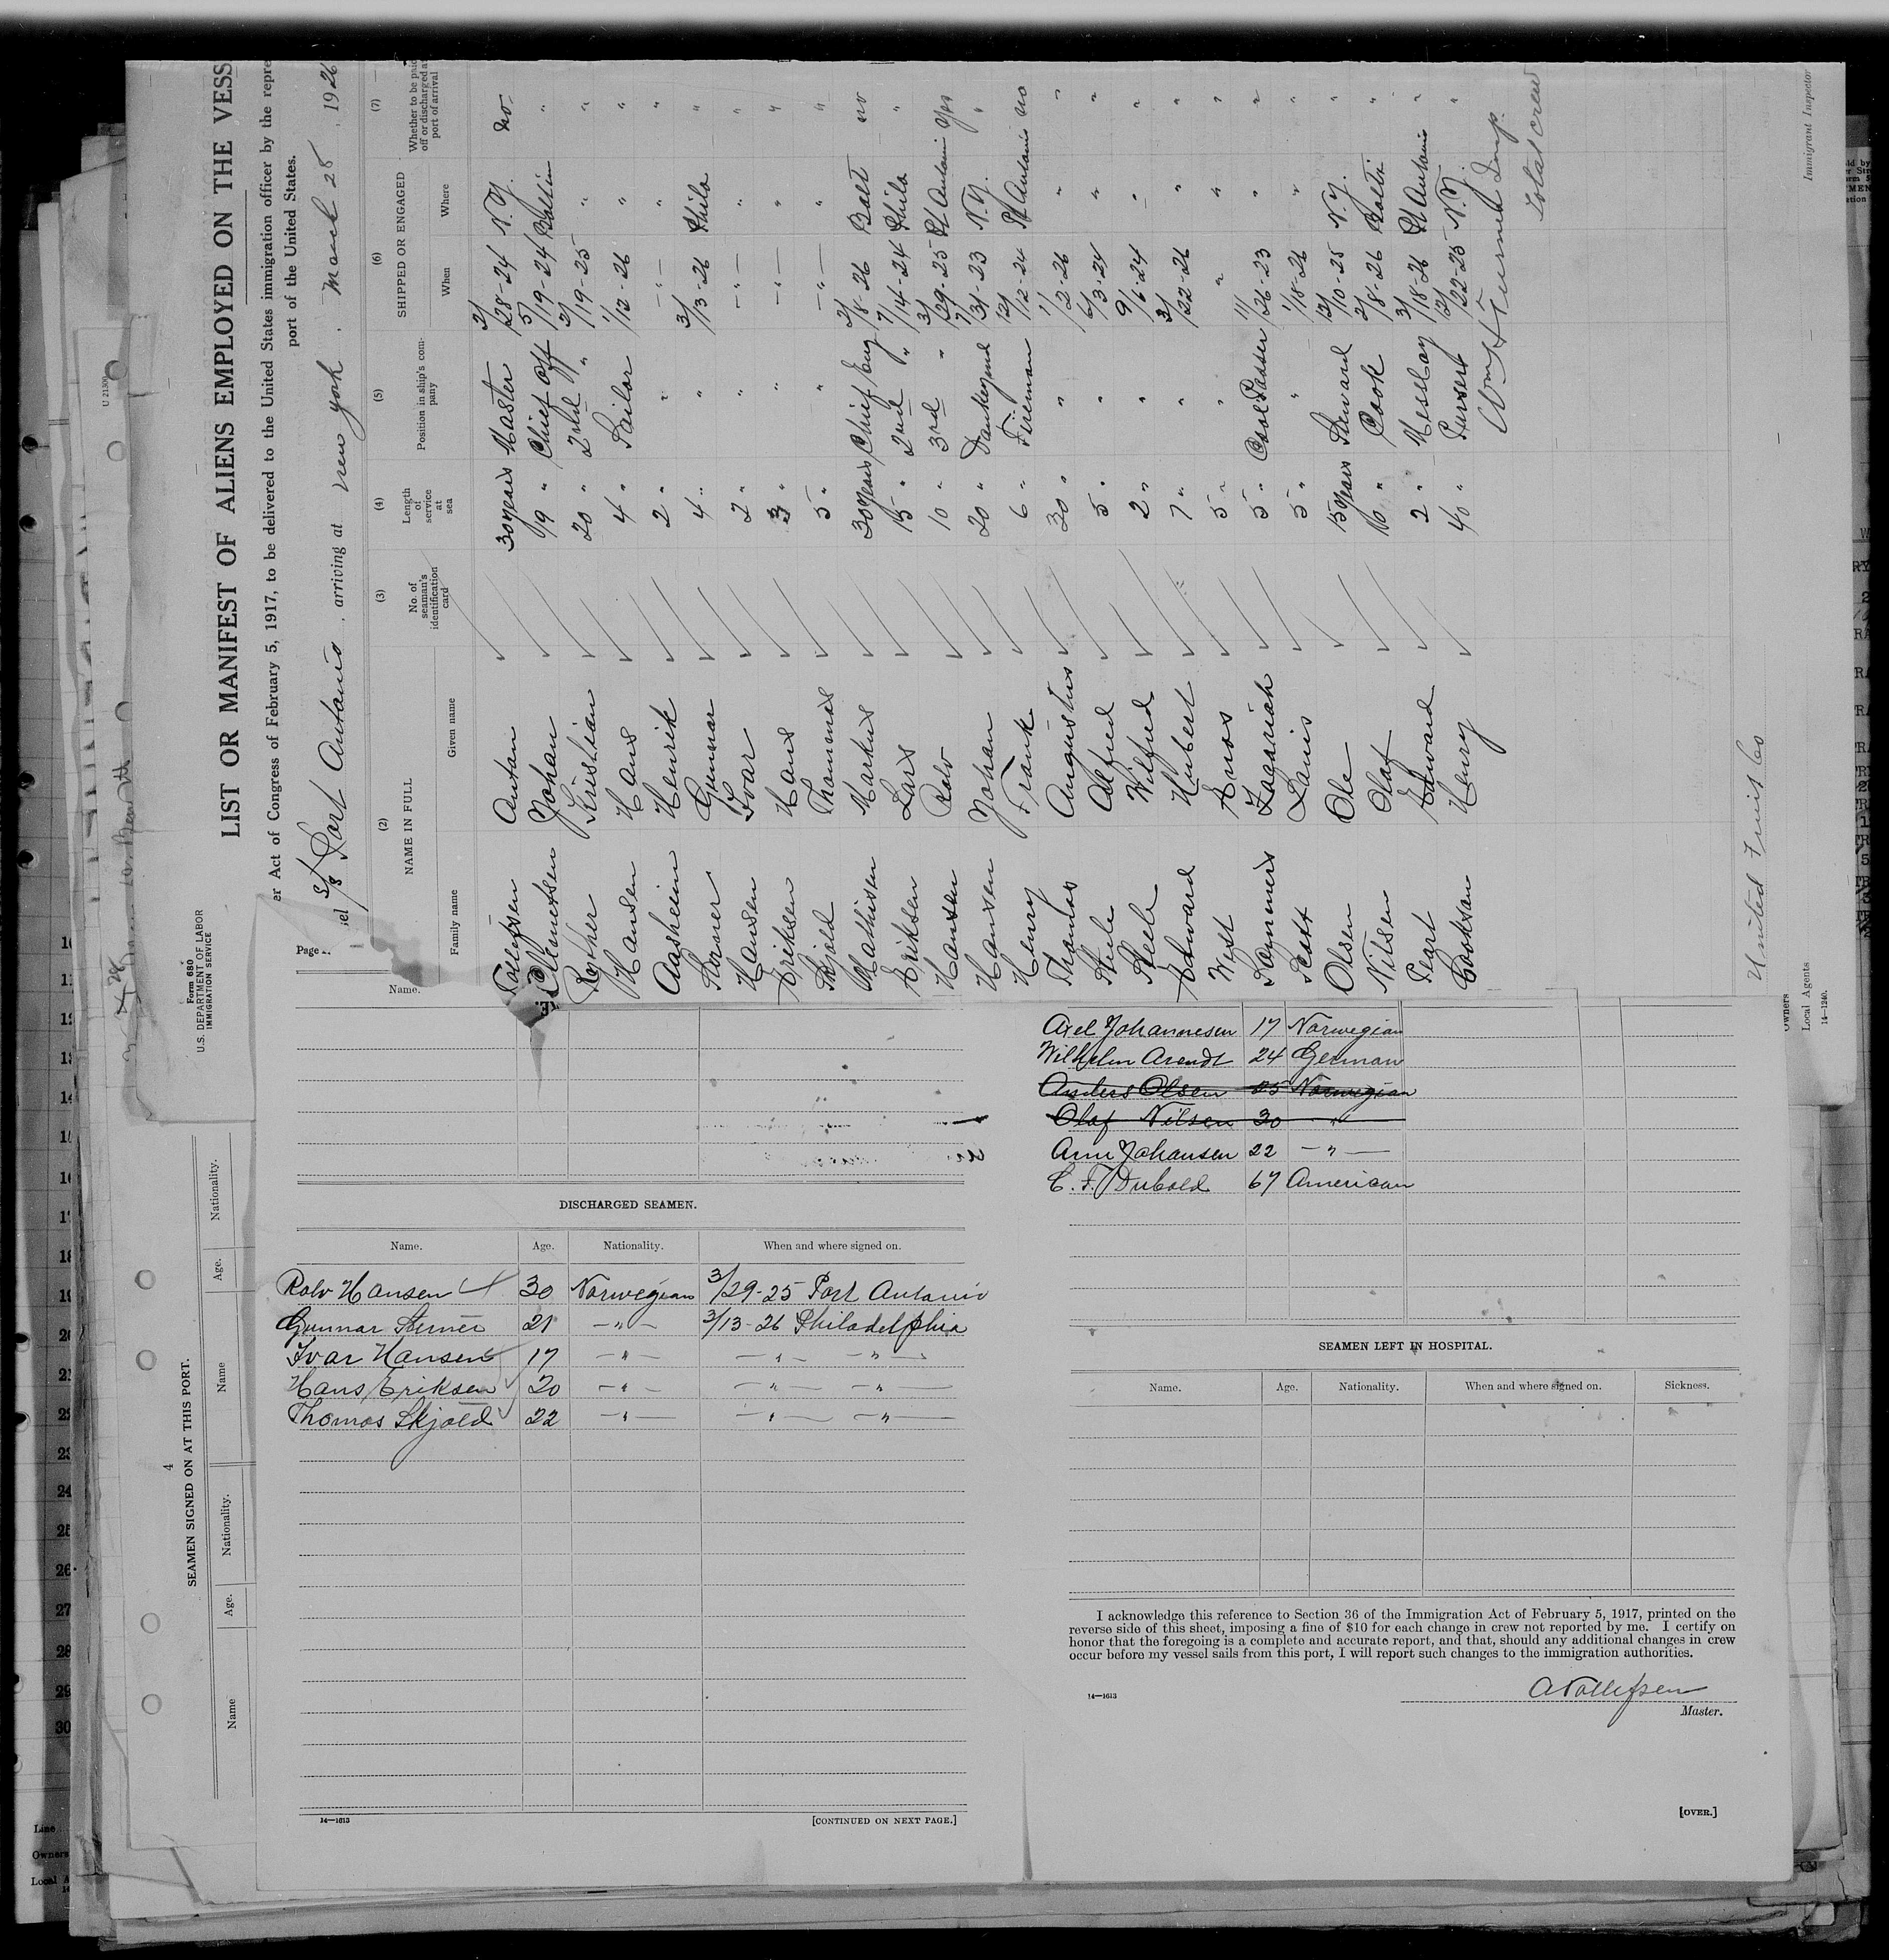 LIST OR MANIFEST OF ALIENS EMPLOYED ON THE VESS
er Act of Congress of February 5, 1917, to be delivered to the United States immigration officer by the repre
port of the United States.
U 21300
Form 680
U.S. DEPARTMENT OF LABOR
IMMIGRATION SERVICE
S/S Port Antonio, arriving at New York, March 28, 1926
(2) (3) (4) (5) (6) (7)
NAME IN FULL
Family name Given name
No. of seaman's identification card
Length of service at sea
Position in ship's company
SHIPPED OR ENGAGED
When Where
Whether to be paid off or discharged at port of arrival
Tollefsen Anton 30 years Master 2/28-24 N.Y. no
Clementsen Johan 19 " Chief Off 5/19-24 Boston "
Kristian 20 " 2nd Off 2/19-25 " "
Hansen Hans 4 " Sailor 1/12-26 " "
Aasheim Henrik 2 " " -"- " "
Gunnar 4 " " 3/13-26 Phila "
Hansen Ivar 2 " " -"- " "
Eriksen Hans 3 " " -"- " "
Skjold Thommas 5 " " -"- " "
Mathisen Markus 30 years Chief Eng 2/8-26 Balt no
Eriksen Lars 15 " 2nd " 7/14-24 Phila "
Hansen Rolv 10 " 3rd " 3/29-25 Pt Antonio Yes
Hansen Johan 20 " Donkeyman 7/31-23 N.Y. "
Henry Frank 6 " Fireman 12/12-24 Pt Antonio no
Thomas Augustus 30 " " 1/2-26 " "
Alfred 5 " " 6/3-24 " "
Steele Wilfred 2 " " 9/6-24 " "
Edward Hubert 7 " " 3/22-26 " "
West Enos 5 " " " " "
Zachariah 5 " Coal Passer 11/26-23 " "
Scott Louis 5 " " 1/18-26 " "
Olsen Ole 15 years Steward 12/10-25 N.Y. "
Nilsen Olaf 10 " Cook 2/8-26 Balti "
Peart Edward 2 " Messboy 3/18-26 Pt Antonio "
Henry 40 " 12/22-25 N.Y. "
Total crew
United Fruit Co
Owners
Local Agents
Immigrant Inspector
14—1240.
Page
Name.
4
SEAMEN SIGNED ON AT THIS PORT.
Name Age. Nationality. Name Age. Nationality.
Axel Johannesen 17 Norwegian
Wilhelm Arendt 24 German
Anders Olsen 25 Norwegian
Olaf Nilsen 30 "
Arne Johansen 22 -"-
C. F. Dubold 67 American
DISCHARGED SEAMEN.
Name. Age. Nationality. When and where signed on.
Rolv Hansen 30 Norwegian 3/29-25 Port Antonio
Gunnar 21 -"- 3/13-26 Philadelphia
Ivar Hansen 17 -"- -"- -"-
Hans Eriksen 20 -"- -"- -"-
Thomas Skjold 22 -"- -"- -"-
14—1613
[CONTINUED ON NEXT PAGE.]
SEAMEN LEFT IN HOSPITAL.
Name. Age. Nationality. When and where signed on. Sickness.
I acknowledge this reference to Section 36 of the Immigration Act of February 5, 1917, printed on the
reverse side of this sheet, imposing a fine of $10 for each change in crew not reported by me. I certify on
honor that the foregoing is a complete and accurate report, and that, should any additional changes in crew
occur before my vessel sails from this port, I will report such changes to the immigration authorities.
14—1613
A Tollefsen
Master.
[OVER.]
Line
Owners
10
11
12
13
14
15
16
17
18
19
20
21
22
23
24
25
26
27
28
29
30